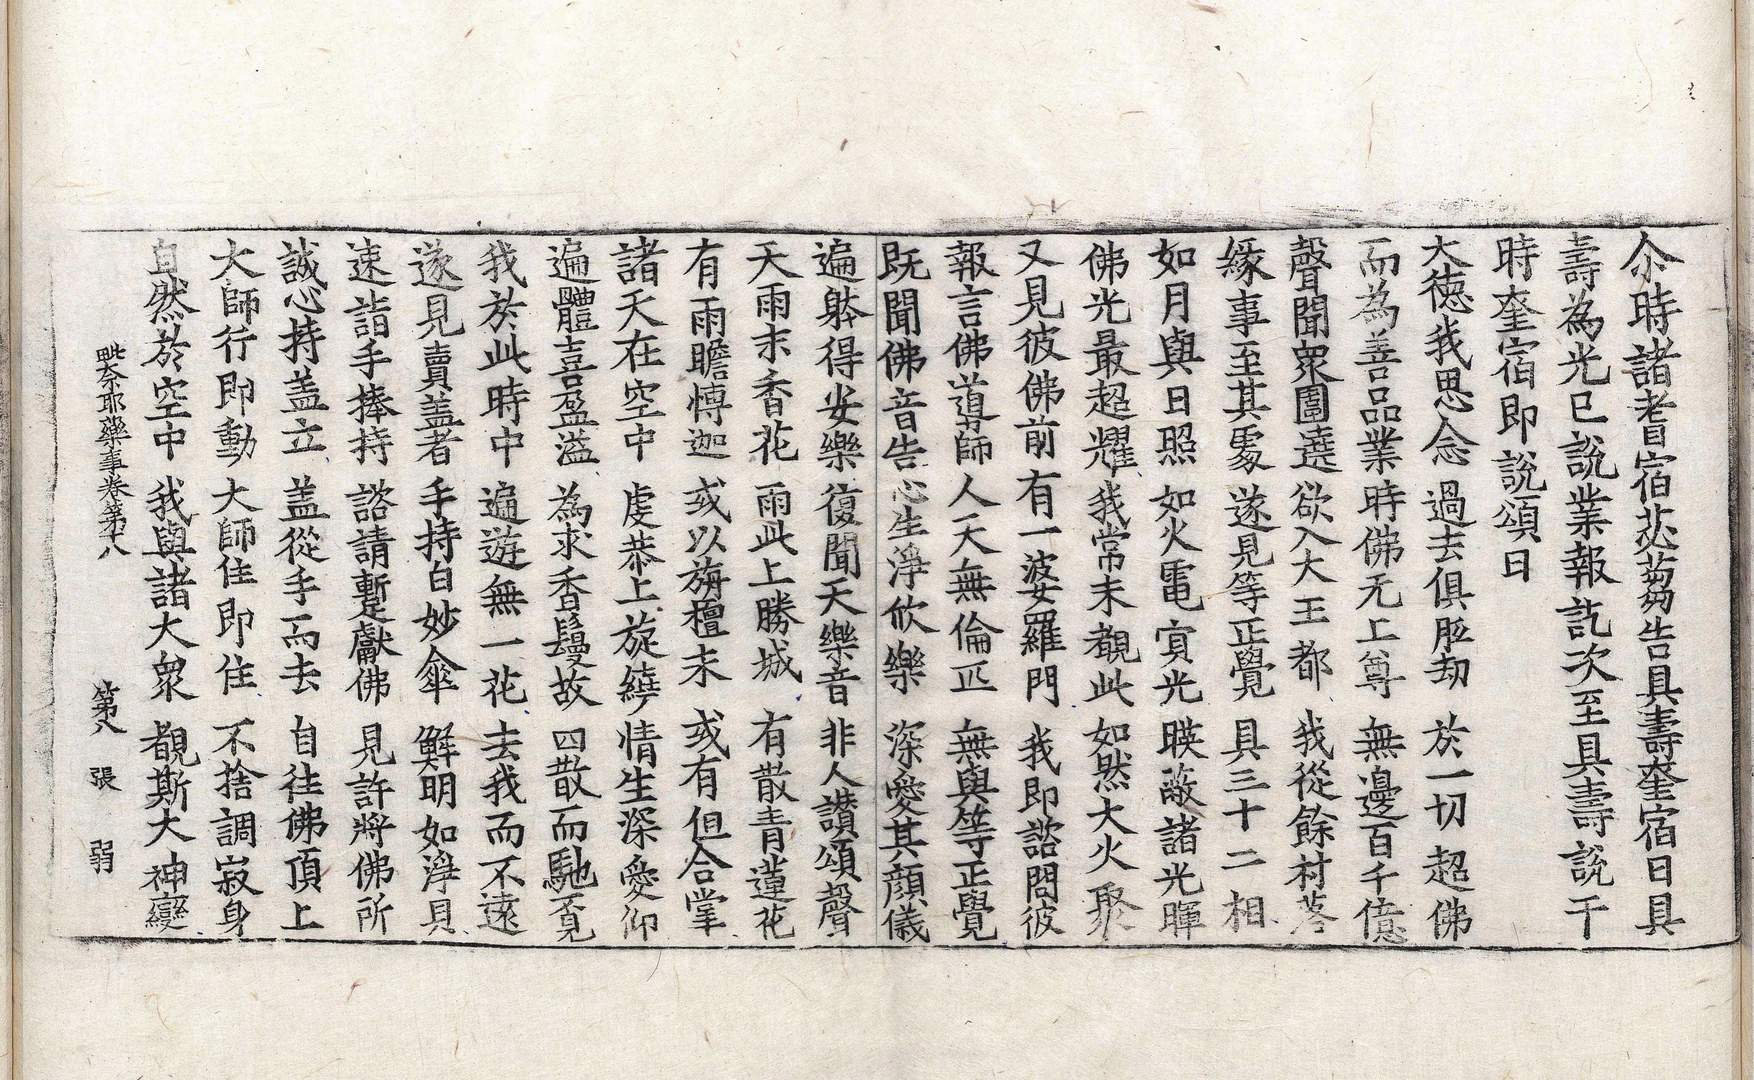 尒時諸耆宿苾蒭告具壽奎宿日具
壽為光已說業報訖次至具壽說干
時奎宿即說頌曰
大德我思念 過去俱胝劫 於一切超佛
而為善品業 時佛无上尊 無邊百千億
聲聞衆圍遶 欲入大王都 我從餘村落
緣事至其䖏 遂見等正覺 具三十二相
如月與日照 如火電寶光 暎蔽諸光暉
佛光最超耀 我常未覩此 如然大火聚
又見彼佛前 有一婆羅門 我即諮問彼
報言佛導師 人天無倫匹 無與等正覺
既聞佛音告 心生淨欣樂 深愛其顏儀
遍躰得安樂 復聞天樂音 非人讃頌聲
天雨末香花 雨此上勝城 有散青蓮花
有雨瞻愽迦 或以旃檀末 或有但合掌
諸天在空中 虔恭上旋繞 情生深愛仰
遍體喜盈溢 為求香鬘故 四散而馳覔
我於此時中 遍遊無一花 去我而不遠
遂見賣盖者 手持白妙傘 鮮明如淨貝
速詣手捧持 諮請暫獻佛 見許將佛所
誠心持盖立 盖從手而去 自往佛頂上
大師行即動 大師住即住 不捨調寂身
自然於空中 我與諸大衆 覩斯大神變
毗奈耶藥事卷第十八 第八 張 弱